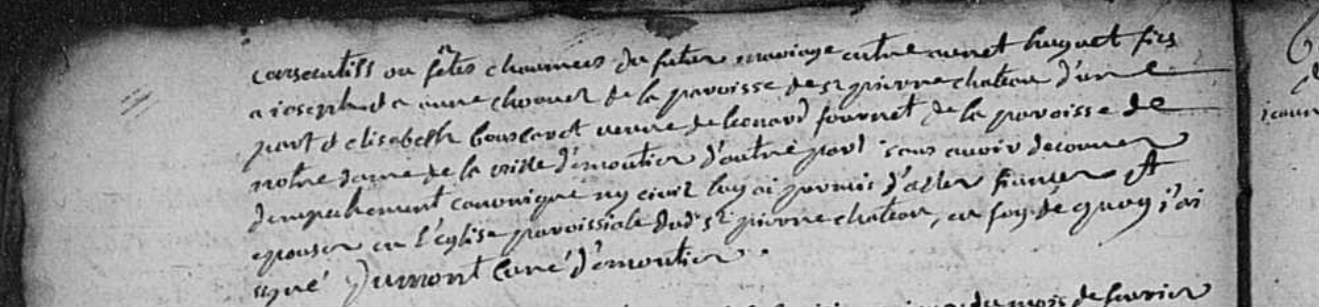 consecutifs ou fêtes chaumees du futur mariage entre annet huguet fils
a joseph et a anne chooner de la paroisse de st pierre chateau d'une
part et elisabeth bouscaret veuve de leonard fournet de la paroisse de
notre dame de la ville d'emoutier d'autre part sans avoir decouver
d'empechement canonique ny civil luy ai permis d'aller fiancer et
epouser en l'eglise paroissiale dud st pierre chateau, en foy de quoy j'ai
signé Dumont curé d'emoutier.
du mois de fevrier